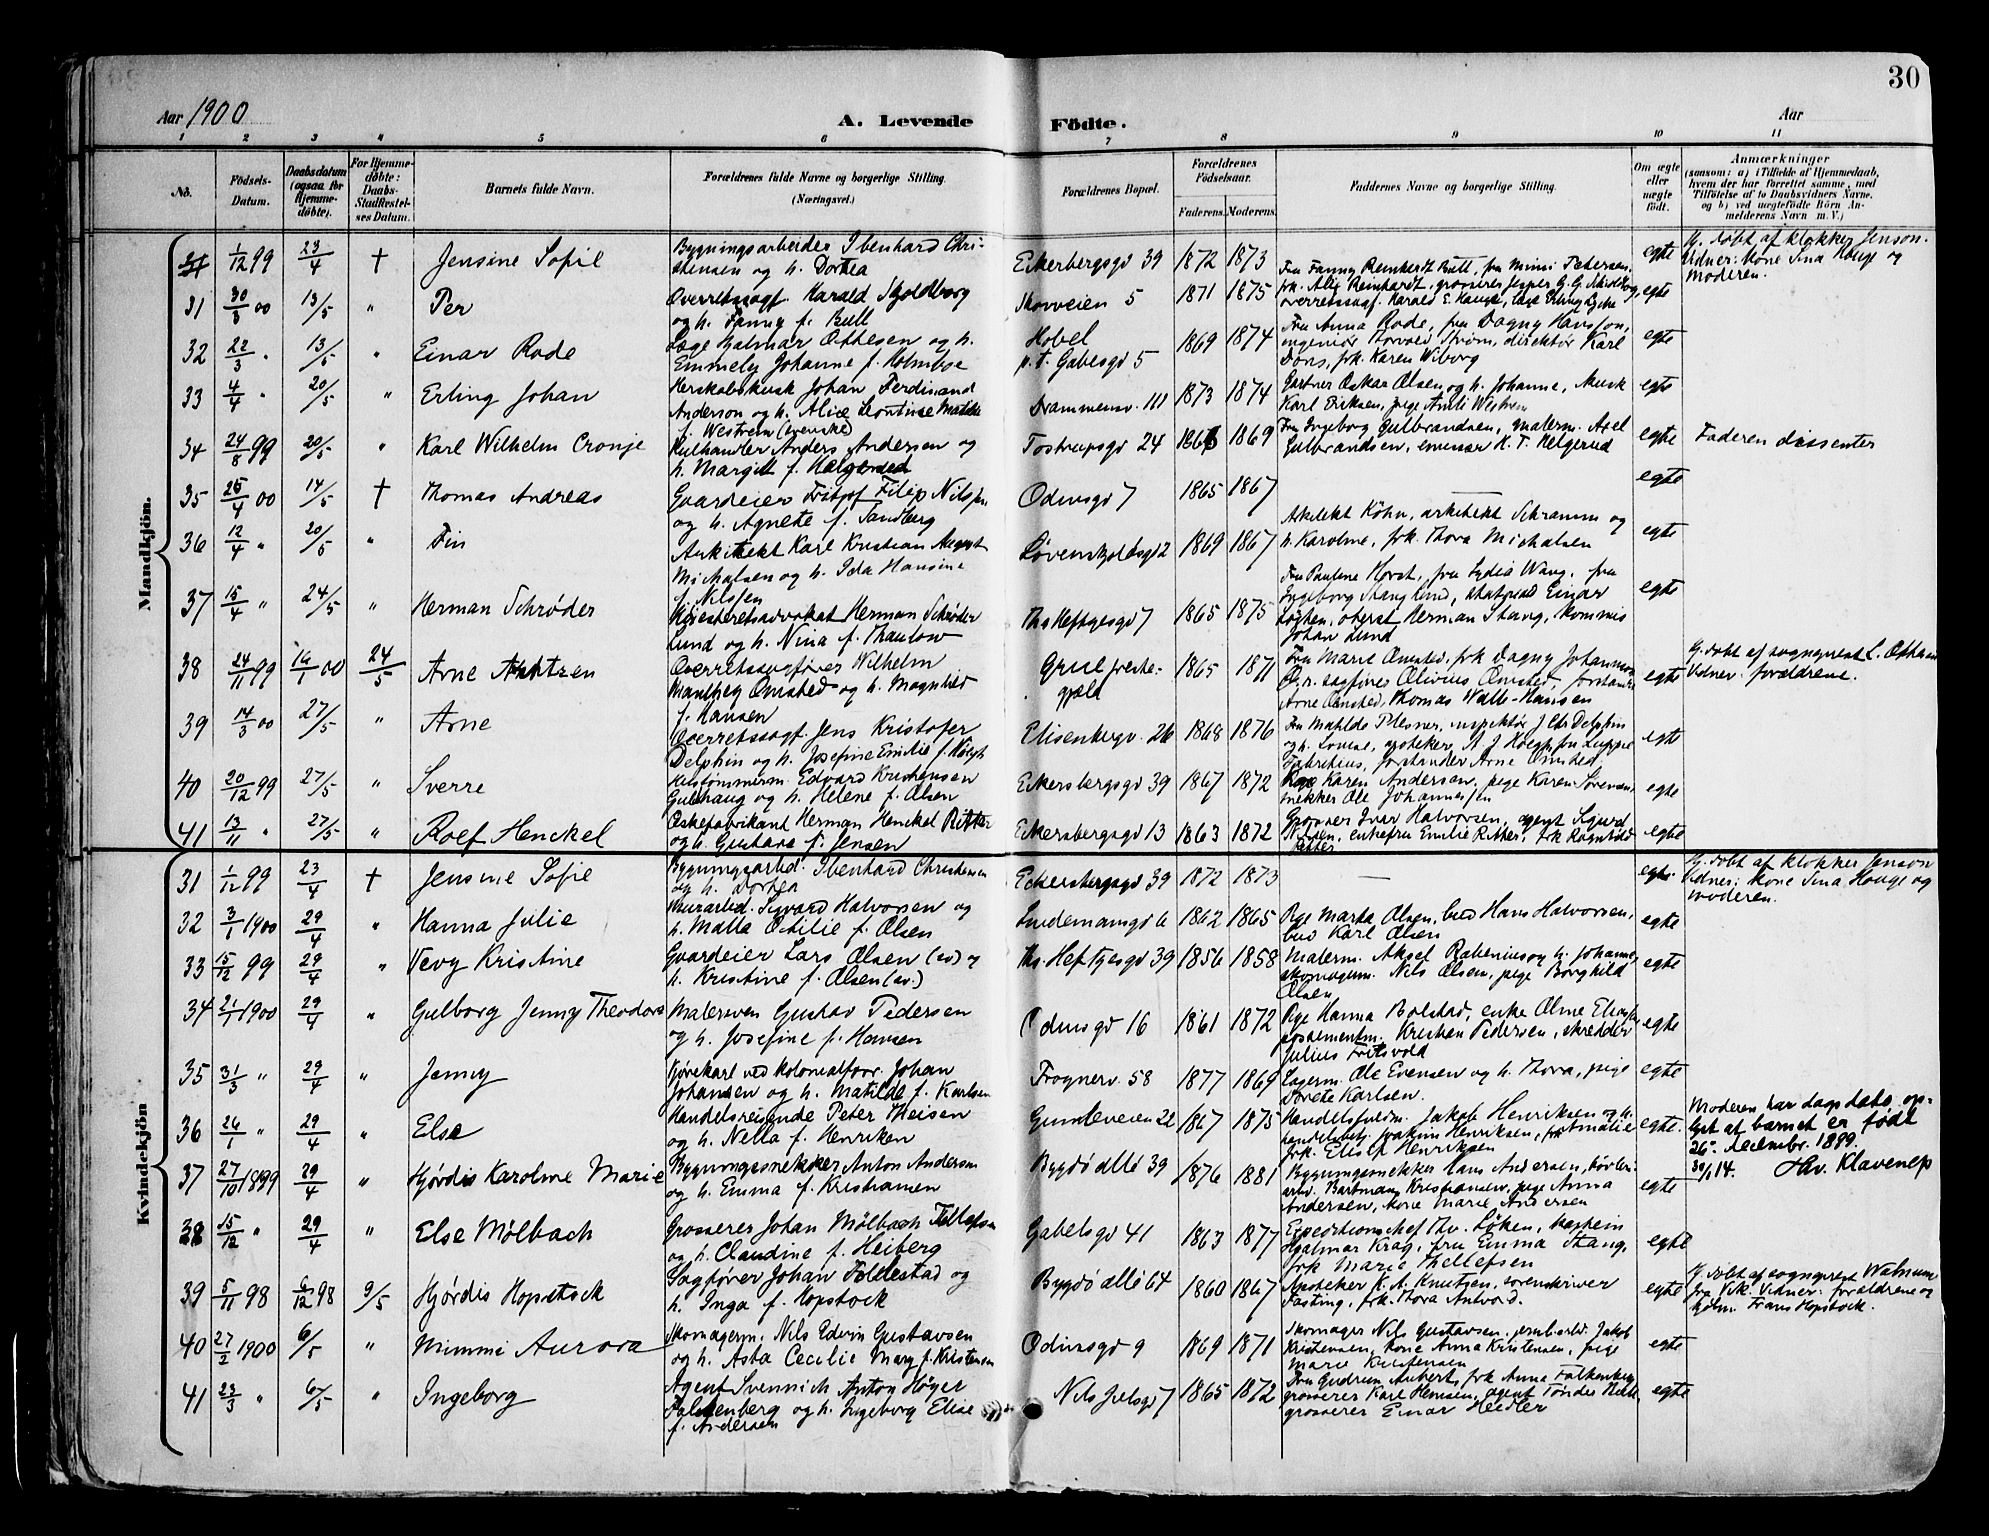 30
Aar 1900
A. Levende Födte.
Aar
1 2 3 4 5 6 7 8 9 10 11
No.
Födsels-Datum.
Daabsdatum (ogsaa for Hjemme-döbte).
For Hjemme-döbte: Daabs-Stadfæstel-ses Datum.
Barnets fulde Navn.
Forældrenes fulde Navne og borgerlige Stilling. (Næringsvei.)
Forældrenes Bopæl.
Forældrenes Födselsaar.
Faderens. Moderens.
Faddernes Navne og borgerlige Stilling.
Om ægte eller uægte födt.
Anmærkninger
(saasom: a) i Tilfælde af Hjemmedaab, hvem der har forrettet samme, med Tilföielse af to Daabsvidners Navne, og b) ved uægtefödte Börn An-melderens Navn m. V.)
Mandkjön.
1/12 99 23/4 † Jensine Sofie
Bygningsarbeider Ibenhard Chri-
stensen og h. Dortea
Eckersbergsgd 39 1872 1873 egte
Hj. døbt af klokker Jenson.
Vidner: Kone Tina Hauge og
Moderen.
31 30/3 00 13/5 " Per
Overretssagf. Harald Skjoldborg
og h. Fanny f. Bull
Skovveien 5 1871 1875
Fru Fanny Reinhardt Bull, fru Mimi Petersen,
frk. Alix Reinhardt, grosserer Jesper G. G. Skjoldborg,
overretssagf. Harald E. Hauge, læge Erling Lycke
egte
32 22/3 " 13/5 " Einar Rode
Læge Hjalmar Ottesen og h.
Emmely Johanne f. Holmboe
Hobøl
p.t. Gabelsgd 5 1869 1874
Fru Anna Rode, fru Dagny Hansson,
ingeniør Torvald Strøm, direktør Karl
Dons, frk. Karen Wiborg
egte
33 4/4 " 20/5 " Erling Johan
Herskabskusk Johan Ferdinand
Anderson og h. Alice Leontine Matilde
f. Westrem (svenske)
Drammensv. 111 1873 1874
Gartner Oskar Olsen og h. Johanne, kusk
Karl Eriksen, pige Amli Westrem
egte
34 24/8 99 20/5 " Karl Wilhelm Cronje
Kulhandler Anders Andersen og
h. Margit f. Helgerud
Tostrupsgd 24 1869
Fru Ingeborg Gulbrandsen, malerm. Axel
Gulbrandsen, K. T. Helgerud
egte Faderen dissenter
35 25/4 00 14/5 † Thomas Andreas
Gaardeier Fritjof Filip Nilssen
og h. Agnete f. Sandberg
Odinsgd 7 1865 1867 egte
36 12/4 " 20/5 " Fin
Arkitekt Karl Kristian August
Michalsen og h. Ida Hansine
f. Nilssen
Løvenskjoldsgd 2 1869 1867
Arkitekt Köhn, arkitekt Schramm og
h. Karoline, frk. Thora Michalsen
egte
37 15/4 " 24/5 " Herman Schrøder
Højesteretsadvokat Herman Schrøder
Lund og h. Nina f. Thaulow
Ths Heftyesgd 7 1865 1875
Fru Pauline Horst, fru Lydia Wang, fru
Ingeborg Stang Lund, Einar
Løchen, oberst Herman Stang, kommis
Johan Lund
egte
38 24/11 99 16/1 00 24/5 Arne Arntzen
Overretssagfører Wilhelm
Manthey Omsted og h. Magnhild
f. Hansen
Grue præste-
gjeld 1865 1871
Fru Marie Omsted, frk Dagny Johannesen
O.r.sagfører Olivius Omsted, forstander
Arne Omsted, Thomas Walle-Hansen
egte
Hj. døbt af sogneprest L. Otthun
Vidner: forældrene.
39 14/3 00 27/5 " Arne
Overretssagf. Jens Kristofer
Delphin og h. Josefine Emilie f. Høegh
Elisenbergv. 26 1868 1876
Fru Matilde Plesner, inspektør J. Chr. Delphin
og h. Lovise, apoteker A. J. Høegh, fru Luppe
Fabritius, forstander Arne Omsted
egte
40 20/12 99 27/5 " Sverre
Hustømmerm. Edvard Kristensen
Gulhaug og h. Helene f. Olsen
Eckersbergsgd 39 1867 1872
Pige Karen Andersen, pige Karen Sørensen,
snekker Ole Johannessen
egte
41 13/11 " 27/5 " Rolf Henckel
Æskefabrikant Herman Henckel Ritter
og h. Gustava f. Jensen
Eckersbergsgd 13 1863 1872
Grosser Ivar Halvorsen, agent Sigurd
Nilsen, enkefru Emilie Ritter, frk Ragnhild
Ritter
egte
Kvindekjön
31 1/12 99 23/4 † Jensine Sofie
Bygningsarbeid. Ibenhard Christensen
og h. Dortea
Eckersbergsgd 39 1872 1873 — egte.
Hj. døbt af klokker Jenson
Vidner: Kone Tina Hauge og
moderen.
32 3/1 1900 29/4 " Hanna Julie
Murarbid. Sigvard Halvorsen og
h. Matla Otilie f. Olsen
Lindemansgd 6 1862 1865
Pige Marta Olsen, bud Hans Halvorsen,
bud Karl Olsen
egte
33 15/12 99 29/4 " Vevy Kristine
Gaardeier Lars Olsen (sv) og
h. Kristine f. Olsen (sv.)
Ths. Heftyesgd 39 1856 1858
Malerm. Aksel Rabenius og h. Johanne,
skomagerm. Nils Olsen, pige Borghild
Olsen
egte
34 21/1 1900 29/4 " Gulborg Jenny Theodora
Malersven Gustav Pedersen
og h. Josefine f. Hansen
Odinsgd 16 1861 1872
Pige Hanna Bolstad, enke Oline Eliassen,
Kristian Pedersen, skredder
Julius Fritsvold
egte
35 31/3 " 29/4 " Jenny
Kjørekarl ved kolonialforr. Johan
Johansen og h. Matilde f. Karlsen
Frognerv. 58 1877 1869
Lagerm. Ole Evensen og h. Thora, pige
Dorete Karlsen.
egte
36 26/1 " 29/4 " Else
Handelsreisende Peter Theisen
og h. Nella f. Henriksen
Gimleveien 22 1867 1875
Handelsfuldm. Jakob Henriksen og h.
handelsbetj. Joakim Henriksen, frk Amalie
frk. Elisif Henriksen
egte.
Moderen har dags dato op-
lyst at barnet er født
26de december 1899.
30/1 14. Hav. Klavenes
37 27/10 1899 29/4 " Hjørdis Karoline Marie
Bygningssnekker Anton Andersen
og h. Emma f. Kristiansen
Bygdø allé 39 1876 1881
Bygningssnekker Hans Andersen,
arb. Bartman Kristiansen, pige Anna
Andersen, kone Marie Andersen
egte
38 15/12 " 29/4 " Else Mølbach
Grosserer Johan Mølbach Tellefsen
og h. Claudine f. Heiberg
Gabelsgd 41 1863 1877
Expeditionschef Thv. Løken, kaptein
Hjalmar Krag, fru Emma Stang,
frk Marie Thellefsen
egte
39 5/11 98 6/12 98 9/5 Hjørdis Hopstock
Sagfører Johan Follestad og
h. Inga f. Hopstock
Bygdø allé 64 1860 1867
Apoteker K. A. Knutsen, sorenskriver
Fasting, frk. Thora Antvord.
egte
Hj. døbt af sogneprest Walnum
fra Vik. Vidner: forældrene og
Frans Hopstock.
40 27/2 1900 6/5 " Mimmi Aurora
Skomagerm. Nils Edvin Gustavsen
og h. Asta Cecilie Mary f. Kristensen
Odinsgd 9 1869 1871
Skomager Nils Gustavsen, jernbarbd. Jakob
Kristensen, kone Anna Kristensen, pige
Marie Kristensen
egte
41 23/3 " 6/5 " Ingeborg
Agent Svennich Anton Høyer
Falkenberg og h. Ingeborg Elise
f. Andersen
Nils Juelsgd 7 1865 1872
Fru Gudrun Aubert, frk Anna Falkenberg,
grosserer Karl Hansen, agent
grosserer Einar Heidler
egte